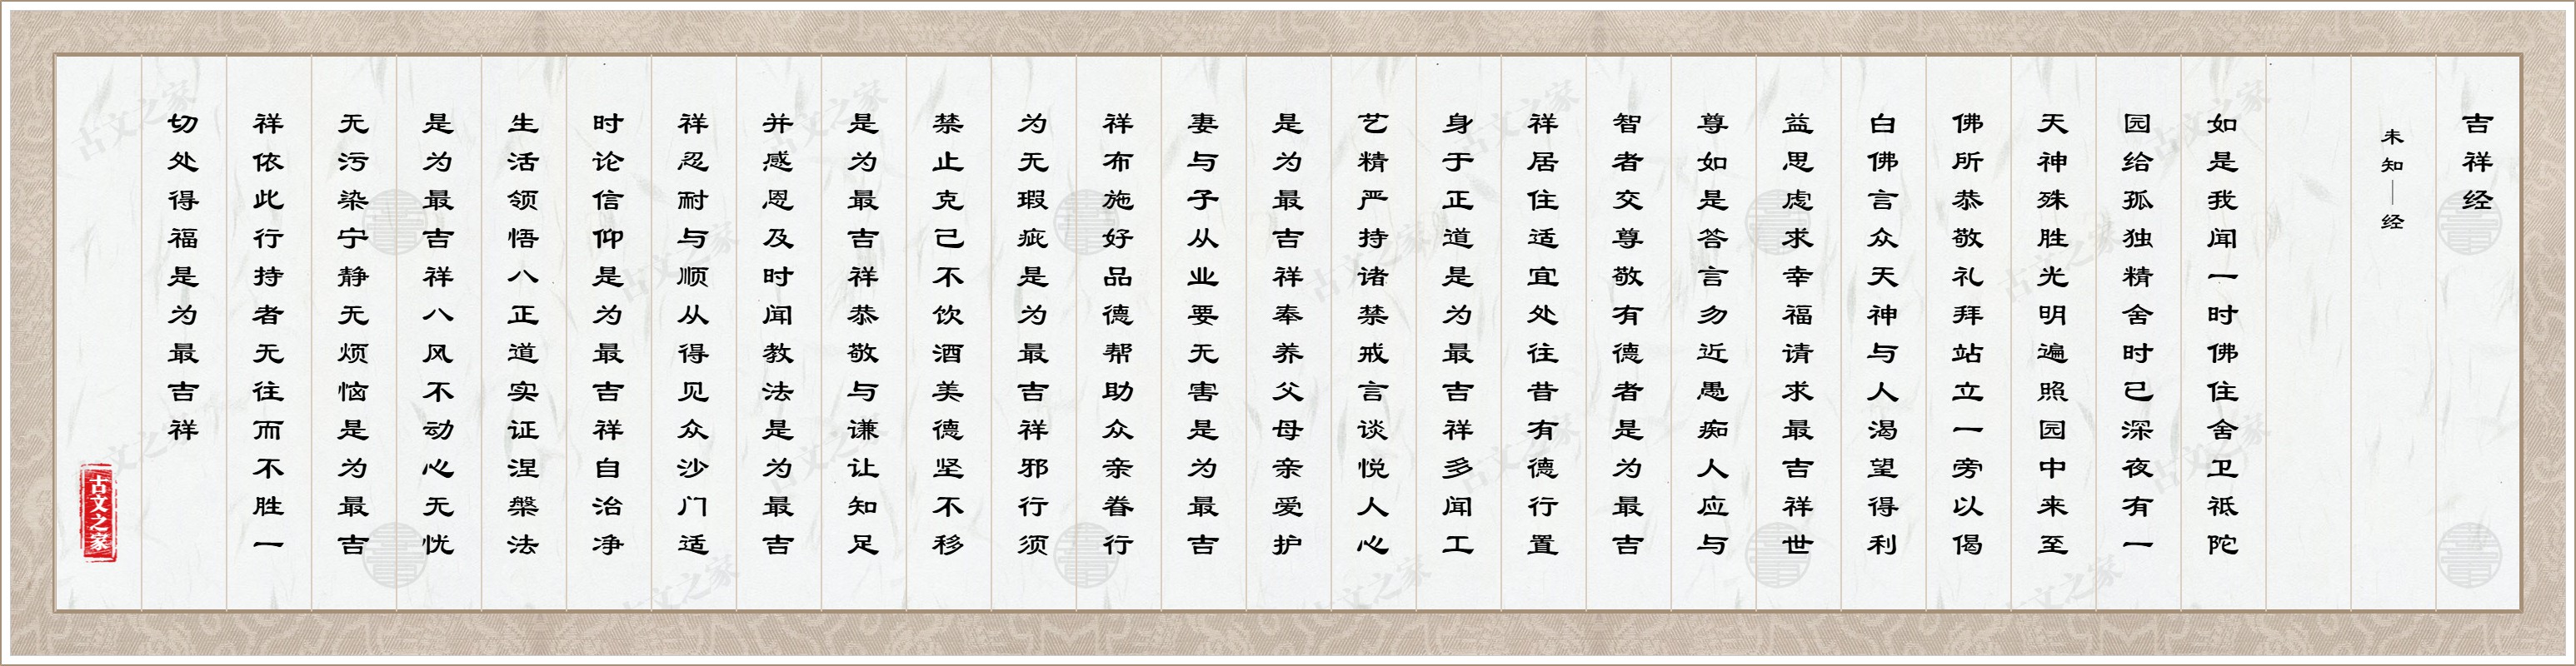 吉祥经
未知—经
如是我闻一时佛住舍卫祇陀
园给孤独精舍时已深夜有一
天神殊胜光明遍照园中来至
佛所恭敬礼拜站立一旁以偈
白佛言众天神与人渴望得利
益思虑求幸福请求最吉祥世
尊如是答言勿近愚痴人应与
智者交尊敬有德者是为最吉
祥居住适宜处往昔有德行置
身于正道是为最吉祥多闻工
艺精严持诸禁戒言谈悦人心
是为最吉祥奉养父母亲爱护
妻与子从业要无害是为最吉
祥布施好品德帮助众亲眷行
为无瑕疵是为最吉祥邪行须
禁止克己不饮酒美德坚不移
是为最吉祥恭敬与谦让知足
并感恩及时闻教法是为最吉
祥忍耐与顺从得见众沙门适
时论信仰是为最吉祥自治净
生活领悟八正道实证涅槃法
是为最吉祥八风不动心无忧
无污染宁静无烦恼是为最吉
祥依此行持者无往而不胜一
切处得福是为最吉祥
古文之家